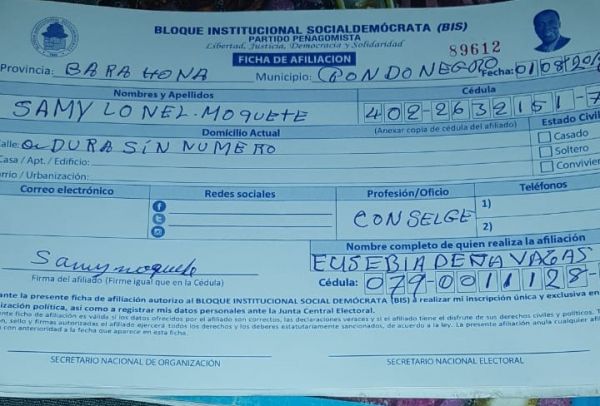 BLOQUE INSTITUCIONAL SOCIALDEMÓCRATA (BIS)
PARTIDO PEÑAGOMISTA
Libertad, Justicia, Democracia y Solidaridad
89612
FICHA DE AFILIACION
Provincia: BARAHONA Municipio: CONDONEGRO Fecha: 01/08/20
Nombres y Apellidos Cédula
SAMY LONEL. MOQUETE 402-2632151-7
Domicilio Actual (Anexar copia de cédula del afiliado) Estado Civil
Calle: DURA SIN NUMERO Casado
Casa / Apt. / Edificio: Soltero
Barrio / Urbanización: Convivien
Correo electrónico Redes sociales Profesión/Oficio Teléfonos
CONSELGE 1)
2)
Nombre completo de quien realiza la afiliación
Samy moquete EUSEBIA PEÑA VAGAS
Firma del afiliado (Firme igual que en la Cédula) Cédula: 079-0011128-
ante la presente ficha de afiliación autorizo al BLOQUE INSTITUCIONAL SOCIAL DEMÓCRATA (BIS) a realizar mi inscripción única y exclusiva en
ización política, así como a registrar mis datos personales ante la Junta Central Electoral.
nte ficha de afiliación es válida si los datos ofrecidos por el afiliado son correctos, las declaraciones veraces y si el afiliado tiene el disfrute de sus derechos civiles y políticos.
ón, sello y firmas autorizadas el afiliado ejercerá todos los derechos y los deberes estatutariamente sancionados, de acuerdo a la ley. La presente afiliación anula cualquier afil
con anterioridad a la fecha que aparece en esta ficha.
SECRETARIO NACIONAL DE ORGANIZACIÓN SECRETARIO NACIONAL ELECTORAL